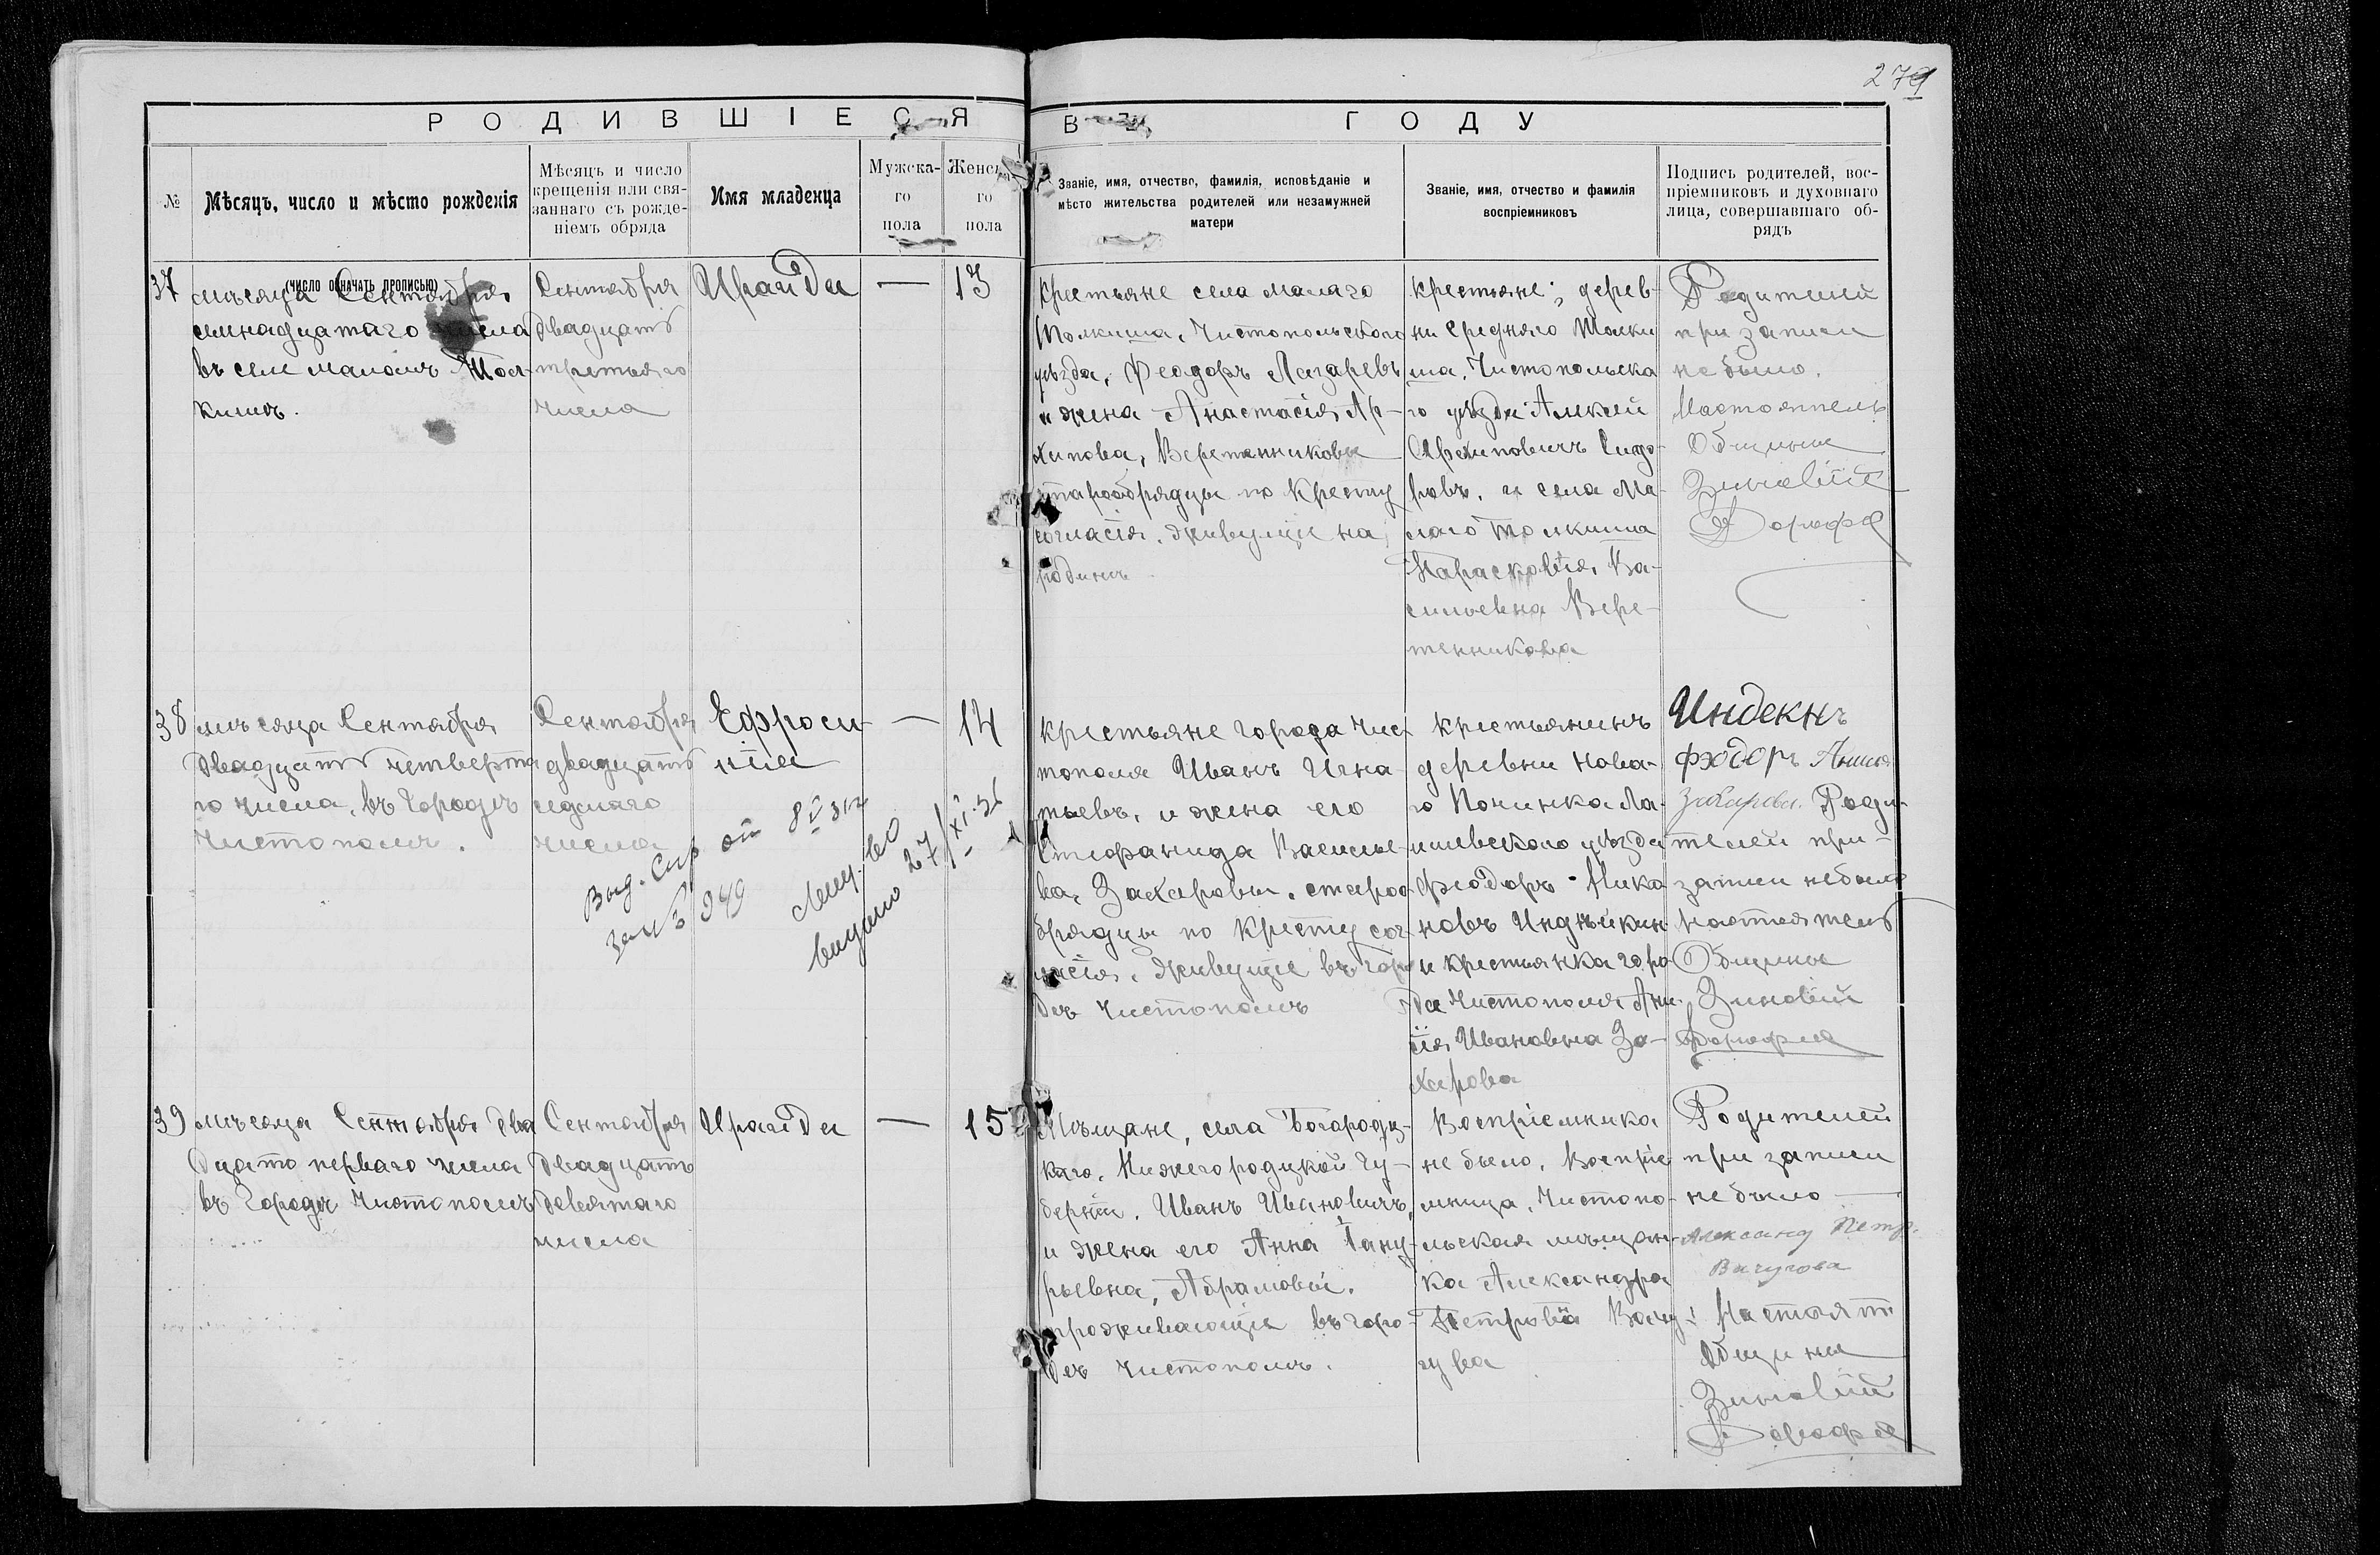 279
РОДИВШІЕСЯ ВЪ ГОДУ
№
Мѣсяцъ, число и мѣсто рожденія
Мѣсяцъ и число
крещенія или свя-
заннаго съ рожде-
ніемъ обряда
Имя младенца
Мужска-
го
пола
Женска
го
пола
Званіе, имя, отчество, фамилія, исповѣданіе и
мѣсто жительства родителей или незамужней
матери
Званіе, имя, отчество и фамилія
воспріемниковъ
Подпись родителей, вос-
пріемниковъ и духовнаго
лица, совершавшаго об-
рядъ
(число означать прописью)
37
мѣсяца Сентября
семнадцатаго числа
въ селе маломъ Тол-
кишѣ.
Сентября
двадцать
третьяго
числа
Ираида
—
13
Крестьяне села малаго
Толкиша, Чистопольскаго
уѣзда, Феодоръ Лазаревъ
и жена Анастасія Ар-
хипова, Веретенниковы
старообрядцы по Кресту
согласія. живущіе на
родинѣ
Крестьяне; дерев-
ни Средняго Толки
ша, Чистопольска
го уѣзда Алексей
Архиповичъ Сидо-
ровъ, и села Ма-
лаго Толкиша
Парасковія Ва-
сильевна Вере-
тенникова
Родителей
при записи
не было.
Настоятель
Общины
Зиновій
Дорофе
38
мѣсяца Сентября
двадцать четверта
го числа, въ городѣ
Чистополѣ.
Сентября
двадцать
седмаго
числа
Ефроси-
нія
—
14
Выд. Спр от 8 V 31г
за № 249
выдано 27/XI-31
крестьяне города Чис
тополя Иванъ Игна
тьевъ, и жена его
Стефанида Василье-
ва, Захаровы. староо
брядцы по Кресту сог
ласія. Живущіе въ горо
дѣ Чистополѣ
крестьянинъ
деревни Нова-
го Починка Ла-
ишевскаго уѣзда
Феодоръ Ника
новъ Индѣйкин
и крестьянка горо
да Чистополя Ани
сія Ивановна За-
харова
Индекнъ
фэодоръ Анися
Захарова. Роди-
телей при-
записи небыло
настоятель
Общины
Зиновій
Дорофеев
39
мѣсяца Сентября два
дцать перваго числа
въ городѣ Чистополѣ
Сентября
двадцать
девятаго
числа
Ираида
—
15
Мѣщане, села Богородц-
каго. Нижегородцкой Гу-
берніи. Иванъ Ивановичъ,
и жена его Анна Іану-
рьевна, Абрамовы.
проживающіе въ горо-
дѣ Чистополѣ.
Воспріемника
не было. Воспріе
мница, Чистопо-
льская мѣщан-
ка Александра
Петрова Вочу-
гова
Родителей
при записи
не было —
Александ Петр.
Вачугова
Настоят
Общины
Зиновій
Дорофе